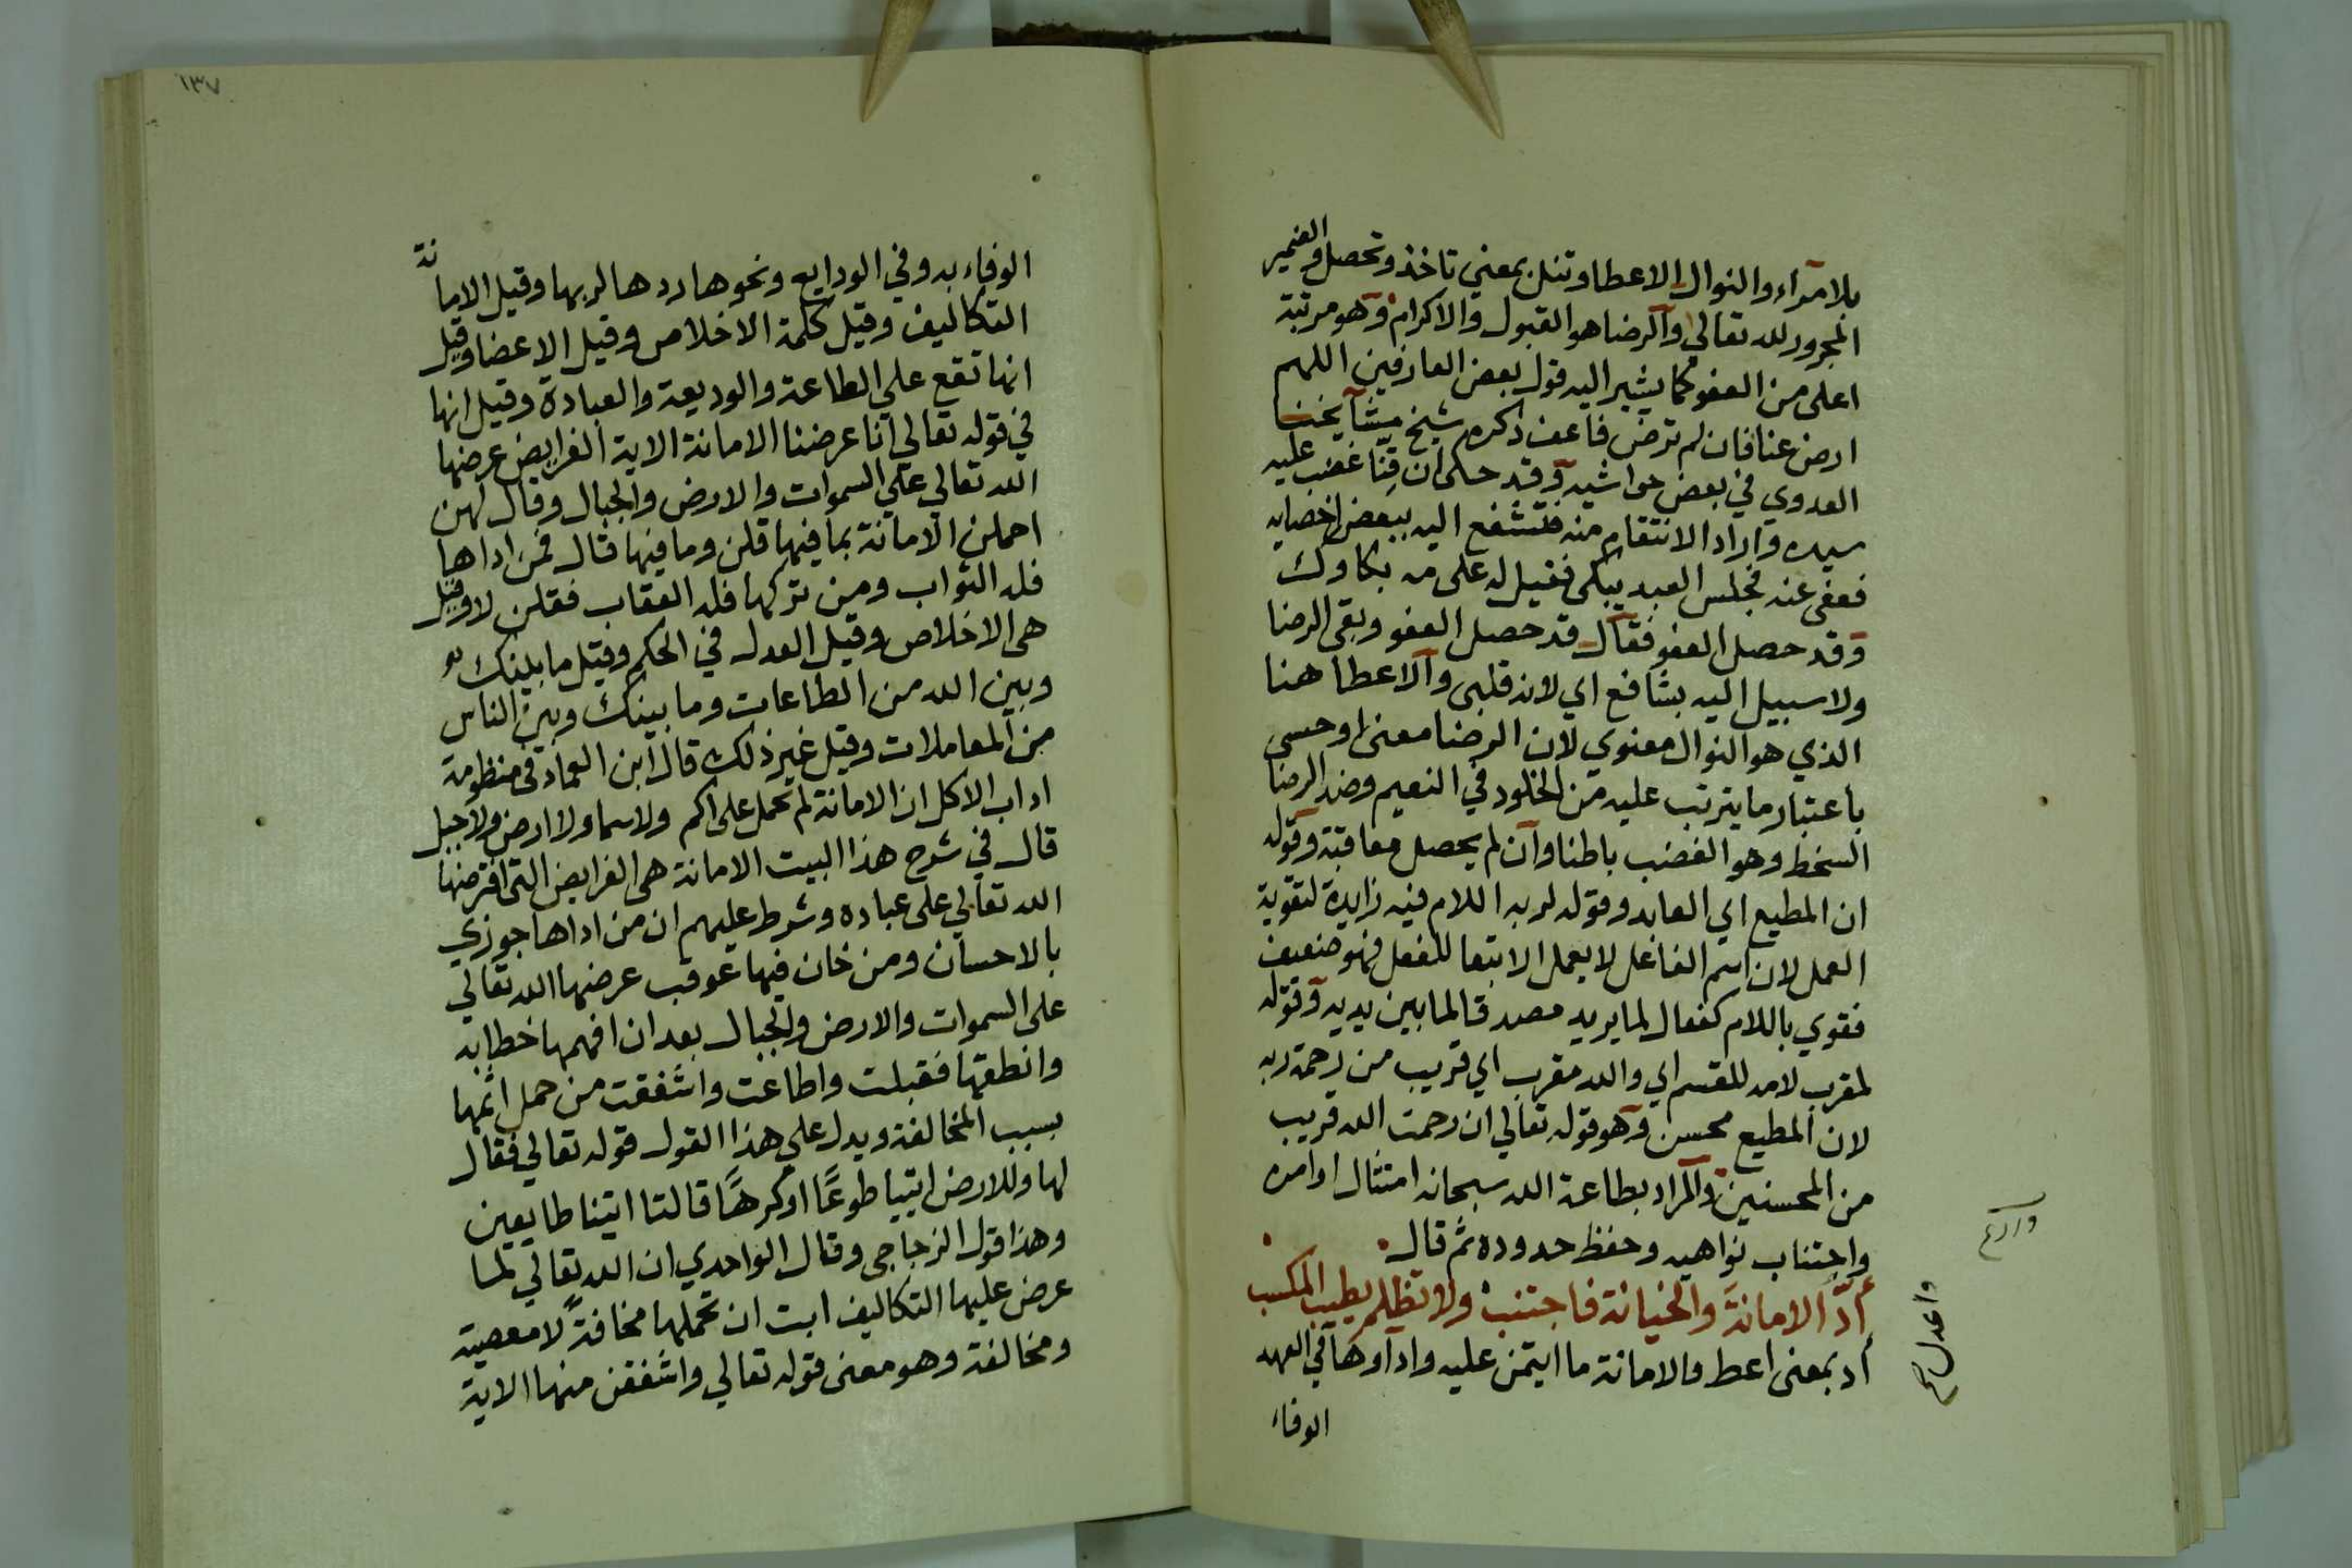 بلا مراء والنوال الاعطا وتنل بمعني تاخذ وتحصل والضمير
المجرور لله تعالي والرضا هو القبول والاكرام وهو مرتبة
اعلى من العفو كما يشير اليه قول بعض العارفين اللهم
ارض عنا فان لم ترض فاعف ذكره شيخ مشايخنا
العدوي في بعض حواشيه وقد حكى ان قِنّا غضب عليه
سيده واراد الانتقام منه فتشفع اليه ببعض اخصايه
فعفى عنه فجلس العبد يبكى فقيل له على مه بكاوك
وقد حصل العفو فقال قد حصل العفو وبقى الرضا
ولا سبيل اليه بشافع اي لانه قلبى والاعطا هنا
الذي هو النوال معنوي لان الرضا معنى او حسى
باعتبار ما يترتب عليه من الخلود في النعيم وضد الرضا
السخط وهو الغضب باطنا وان لم يحصل معاقبة وقوله
ان المطيع اي العابد وقوله لربه اللام فيه زايدة لتقوية
العمل لان اسم الفاعل لا يعمل الا بتعا للفعل فهو ضعيف
فقوي باللام كفعال لما يريد مصدقا لما بين يديه وقوله
لمقرب لامه للقسم اي والله مقرب اي قريب من رحمة ربه
لان المطيع محسن وهو قوله تعالي ان رحمت الله قريب
من المحسنين والمراد بطاعة الله سبحانه امتثال اوامره
واجتناب نواهيه وحفظ حدوده ثم قال
أدِّ الامانةَ والخيانة فاجتنب ولا تظلم يطيب المكسب
واعدل
أد بمعنى اعط والامانة ما ايتمن عليه واداوها في العهد
الوفاء
١٣٧
الوفاء به وفي الودايع ونحوها ردها لربها وقيل الامانة
التكاليف وقيل كلمة الاخلاص وقيل الاعضا وقيل
انها تقع علي الطاعة والوديعة والعبادة وقيل انها
في قوله تعالي انا عرضنا الامانة الاية الفرايض عرضها
الله تعالي علي السموات والارض والجبال وقال لهن
احملن الامانة بما فيها قلن وما فيها قال فمن اداها
فله الثواب ومن تركها فله العقاب فقلن لا وقيل
هى الاخلاص وقيل العدل في الحكم وقيل ما بينك
وبين الله من الطاعات وما بينك وبين الناس
من المعاملات وقيل غير ذلك قال ابن العماد في منظومة
اداب الاكل ان الامانة لم تحمل على اكم ولا سما ولا ارض ولا جبل
قال في شرح هذا البيت الامانة هى الفرايض التى افترضها
الله تعالي على عباده وشرط عليهم ان من اداها جوزي
بالاحسان ومن خان فيها عوقب عرضها الله تعالي
على السموات والارض والجبال بعد ان افهمها خطابه
وانطقها فقبلت واطاعت واشفقت من حمل اثمها
بسبب المخالفة ويدل علي هذا القول قوله تعالي فقال
لها وللارض ايتيا طوعًا او كرهًا قالتا اتينا طايعين
وهذا قول الزجاجى وقال الواحدي ان الله تعالي لما
عرض عليها التكاليف ابت ان تحملها مخافةً لا معصية
ومخالفة وهو معنى قوله تعالي واشفقن منها الاية